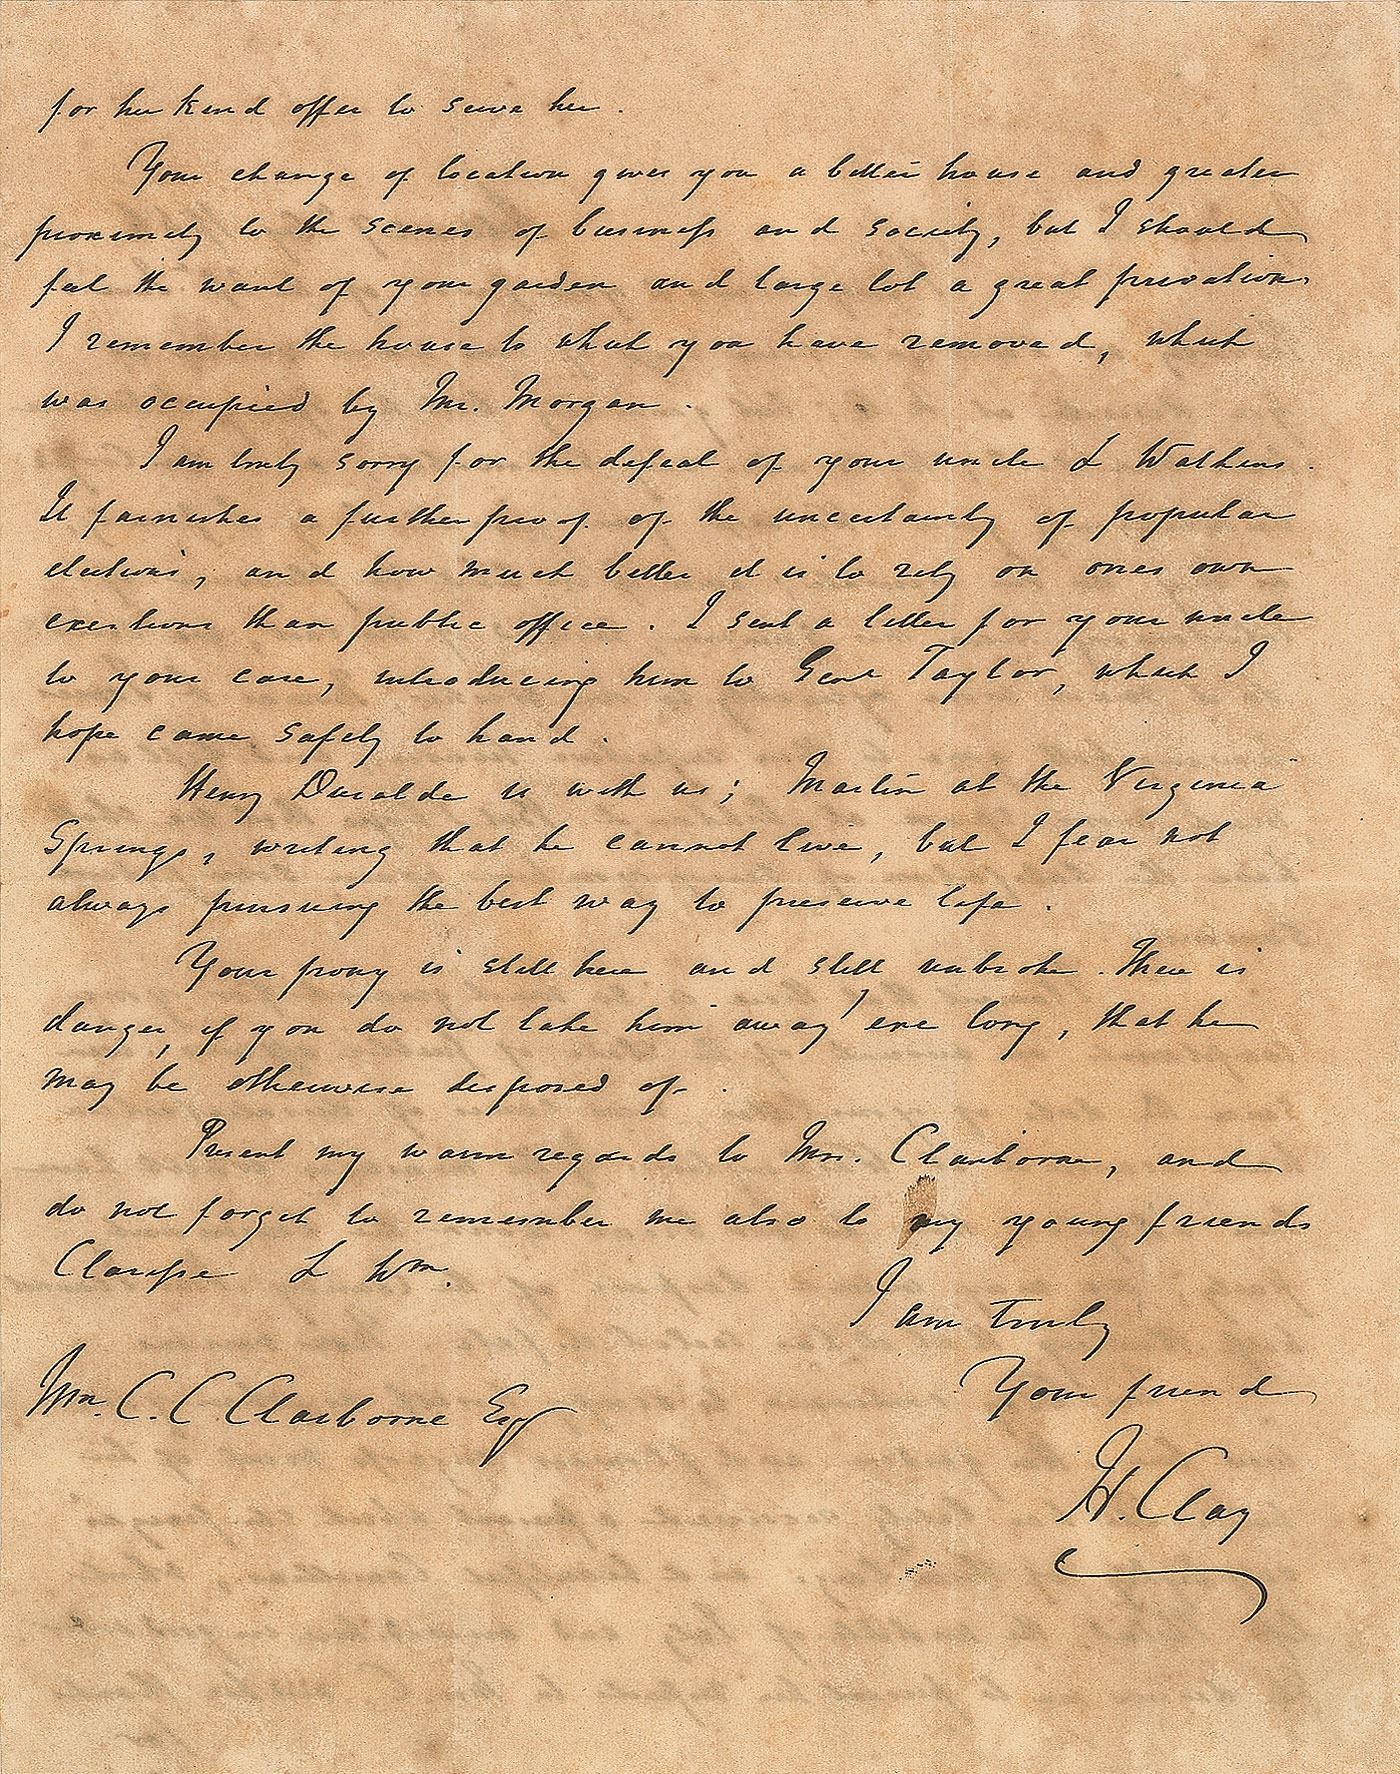 for her kind offer to serve her.
Your change of location gives you a better house and greater
proximity to the scenes of business and society, but I should
feel the want of your garden and large lot a great privation.
I remember the house to which you have removed, which
was occupied by Mr. Morgan.
I am truly sorry for the defeat of your uncle L Watkins.
It furnishes a further proof of the uncertainty of popular
elections, and how much better it is to rely on ones own
exertions than public office. I sent a letter for your uncle
to your care, introducing him to Genl Taylor, which I
hope came safely to hand.
Henry Duralde is with us; Martin at the Virginia
Springs, writing that he cannot live, but I fear not
always pursuing the best way to preserve life.
Your pony is still here and still unbroke. There is
danger, if you do not take him away ere long, that he
may be otherwise disposed of.
Present my warm regards to Mrs. Claiborne, and
do not forget to remember me also to my young friends
Clarisse & Wm.
I am truly
Your friend
H. Clay
Wm. C. C Claiborne Esq